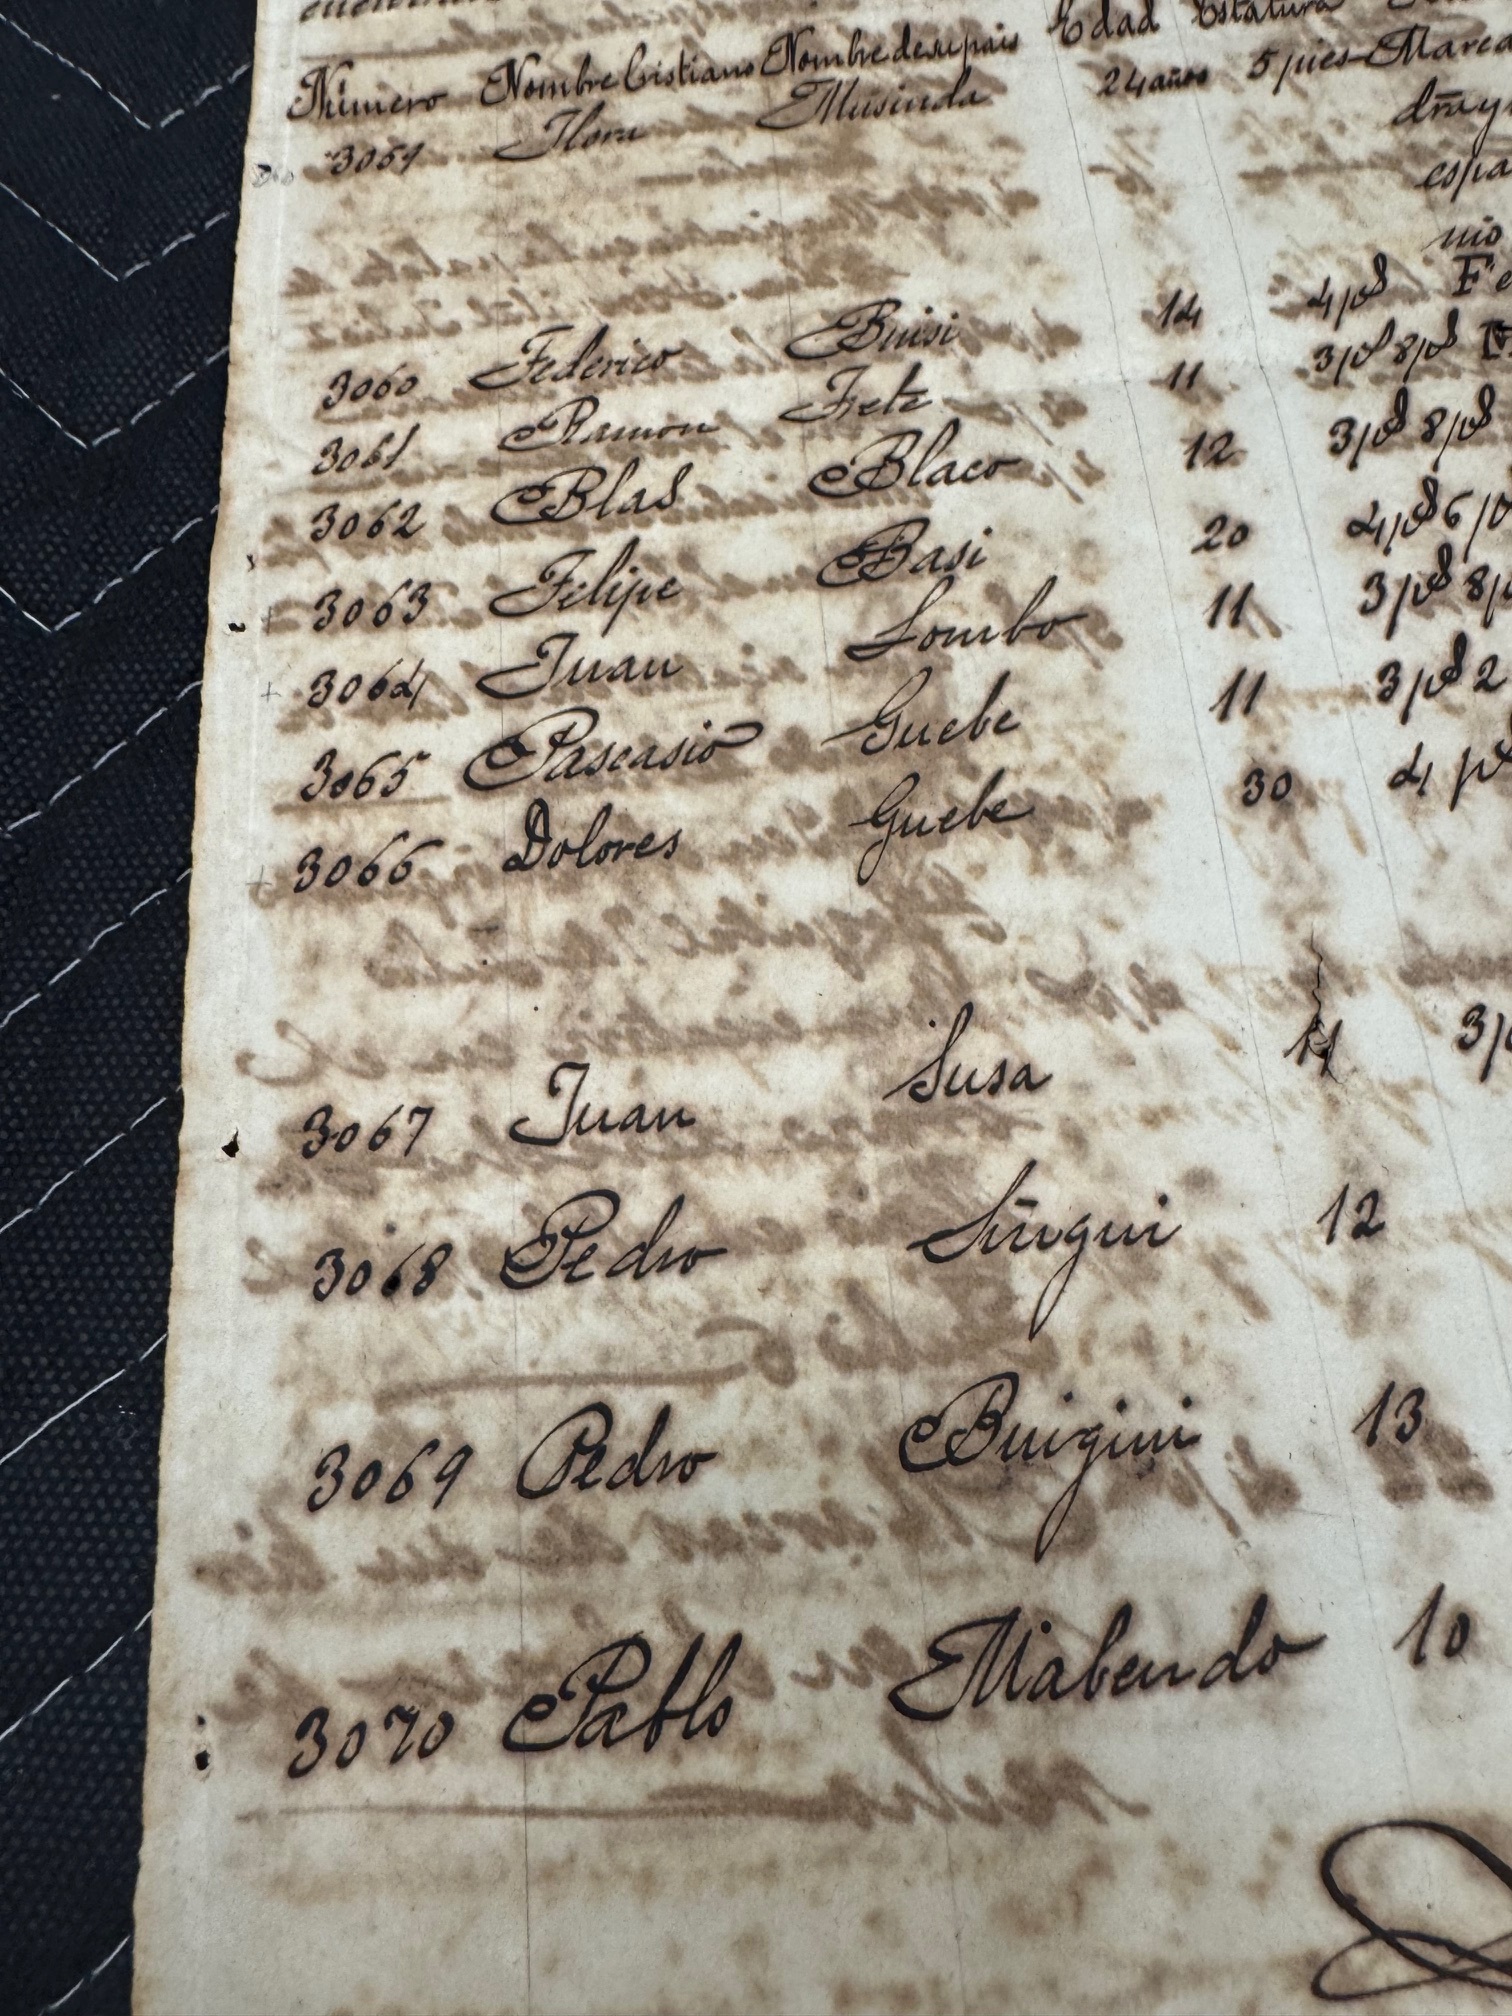 Número Nombre Cristiano Nombre de su pais Edad Estatura
3059 Flora Musinda 24 años 5 pies Marca
dra y
espa
mo
3060 Federico Buisi 14 4 ps Fe
3061 Ramon Frete 11 3 ps 8 ps
3062 Blas Blaco 12 3 ps 8 ps
3063 Felipe Basi 20 4 ps 6 p
3064 Juan Lombo 11 3 ps 8 p
3065 Pascasio Guebe 11 3 ps 2
3066 Dolores Guebe 30 4 p
3067 Juan Susa 11 3 p
3068 Pedro Siñgui 12
3069 Pedro Buigini 13
3070 Pablo Mabendo 10